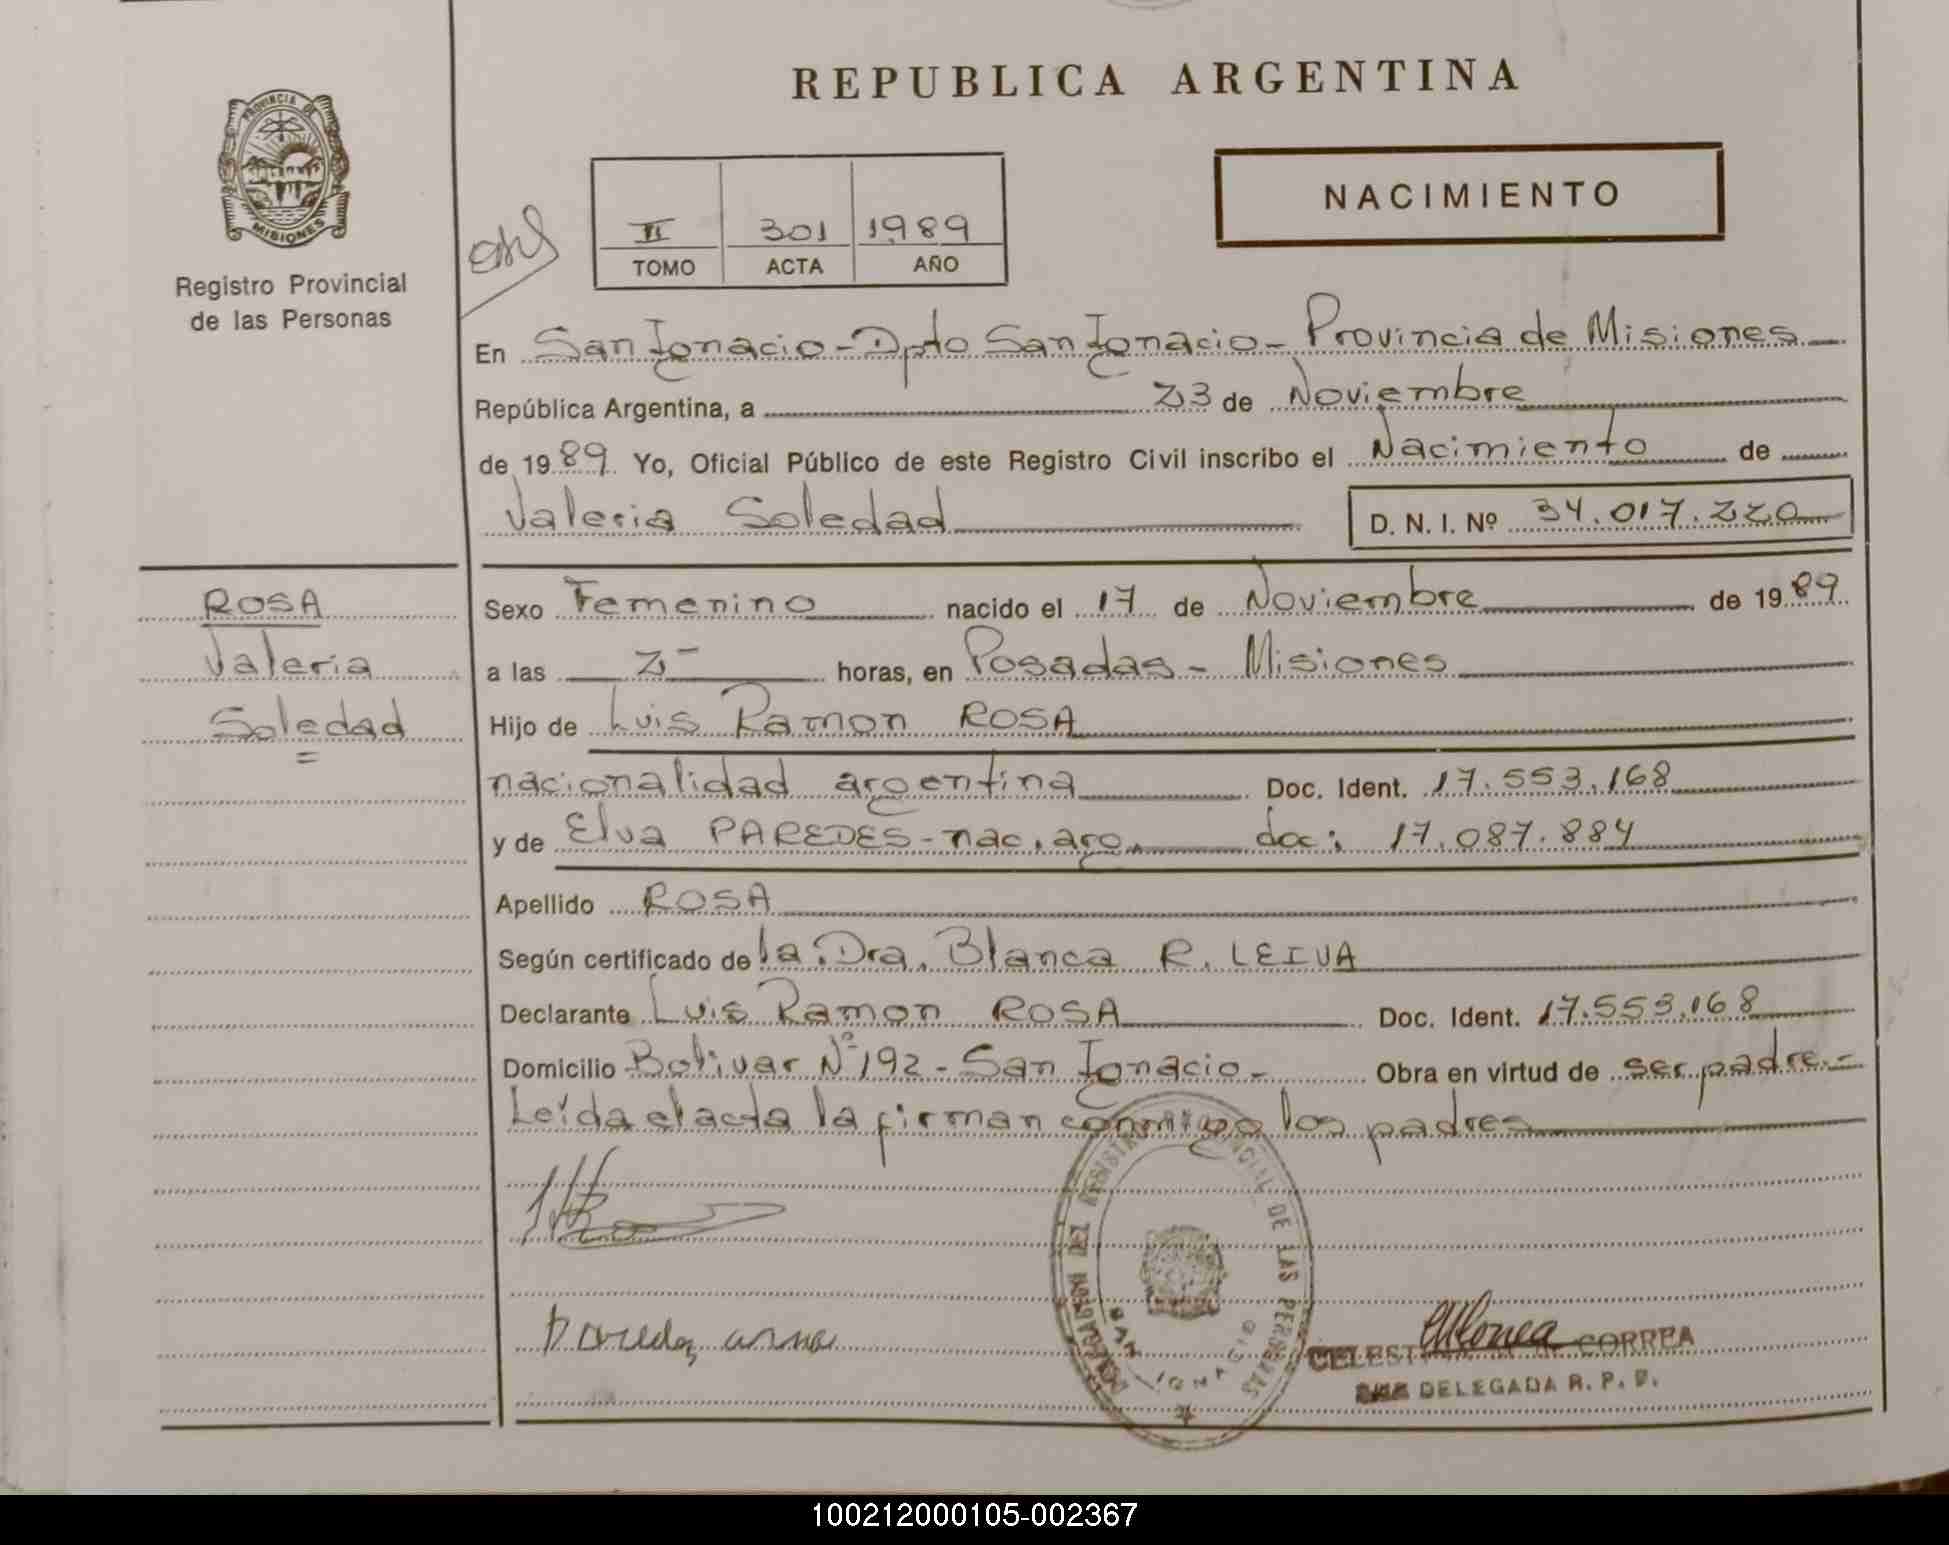 REPUBLICA ARGENTINA
PROVINCIA DE
MISIONES
Registro Provincial
de las Personas
NACIMIENTO
II 301 1989
TOMO ACTA AÑO
En San Ignacio - Dpto San Ignacio - Provincia de Misiones
República Argentina, a 23 de Noviembre
de 1989 Yo, Oficial Público de este Registro Civil inscribo el Nacimiento de
Valeria Soledad
D. N. I. Nº 34.017.220
ROSA
Valeria
Soledad
Sexo Femenino nacido el 17 de Noviembre de 1989
a las 2 horas, en Posadas - Misiones
Hijo de Luis Ramon ROSA
nacionalidad argentina Doc. Ident. 17.553.168
y de Elva PAREDES - nac. arg. doc: 17.087.884
Apellido ROSA
Según certificado de la Dra. Blanca R. LEIVA
Declarante Luis Ramon ROSA Doc. Ident. 17.553.168
Domicilio Bolivar Nº 192 - San Ignacio - Obra en virtud de ser padre.-
Leída el acta la firman conmigo los padres
DELEGACION DEL REGISTRO PROVINCIAL DE LAS PERSONAS
SAN IGNACIO
CORREA
DELEGADA R. P. P.
100212000105-002367